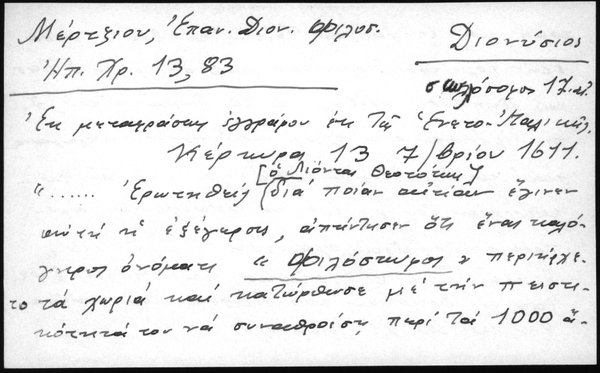 Μέρτζιου, Ἐπαν. Διον. Φιλοσ.
Διονύσιος
Ἠπ. Χρ. 13, 83
σκυλόσοφος 17. αἰ.
Ἐκ μεταφράσεως ἐγγράφου ἐκ τῆς Ἑνετο-Ἰταλικῆς.
Κέρκυρα 13 7/βρίου 1611.
[ὁ Λιόντας Θεοτόκης]
"...... Ἐρωτηθείς (διά ποίαν αἰτίαν ἔγινεν
αὐτή ἡ ἐξέγερσις, ἀπήντησεν ὅτι ἕνας καλό-
γηρος ὀνόματι "Φιλόστομος" περιήρχε-
το τά χωριά καί κατώρθωσε μέ τήν πειστι-
κότητά του νά συναθροίσῃ περί τά 1000 ἄ-